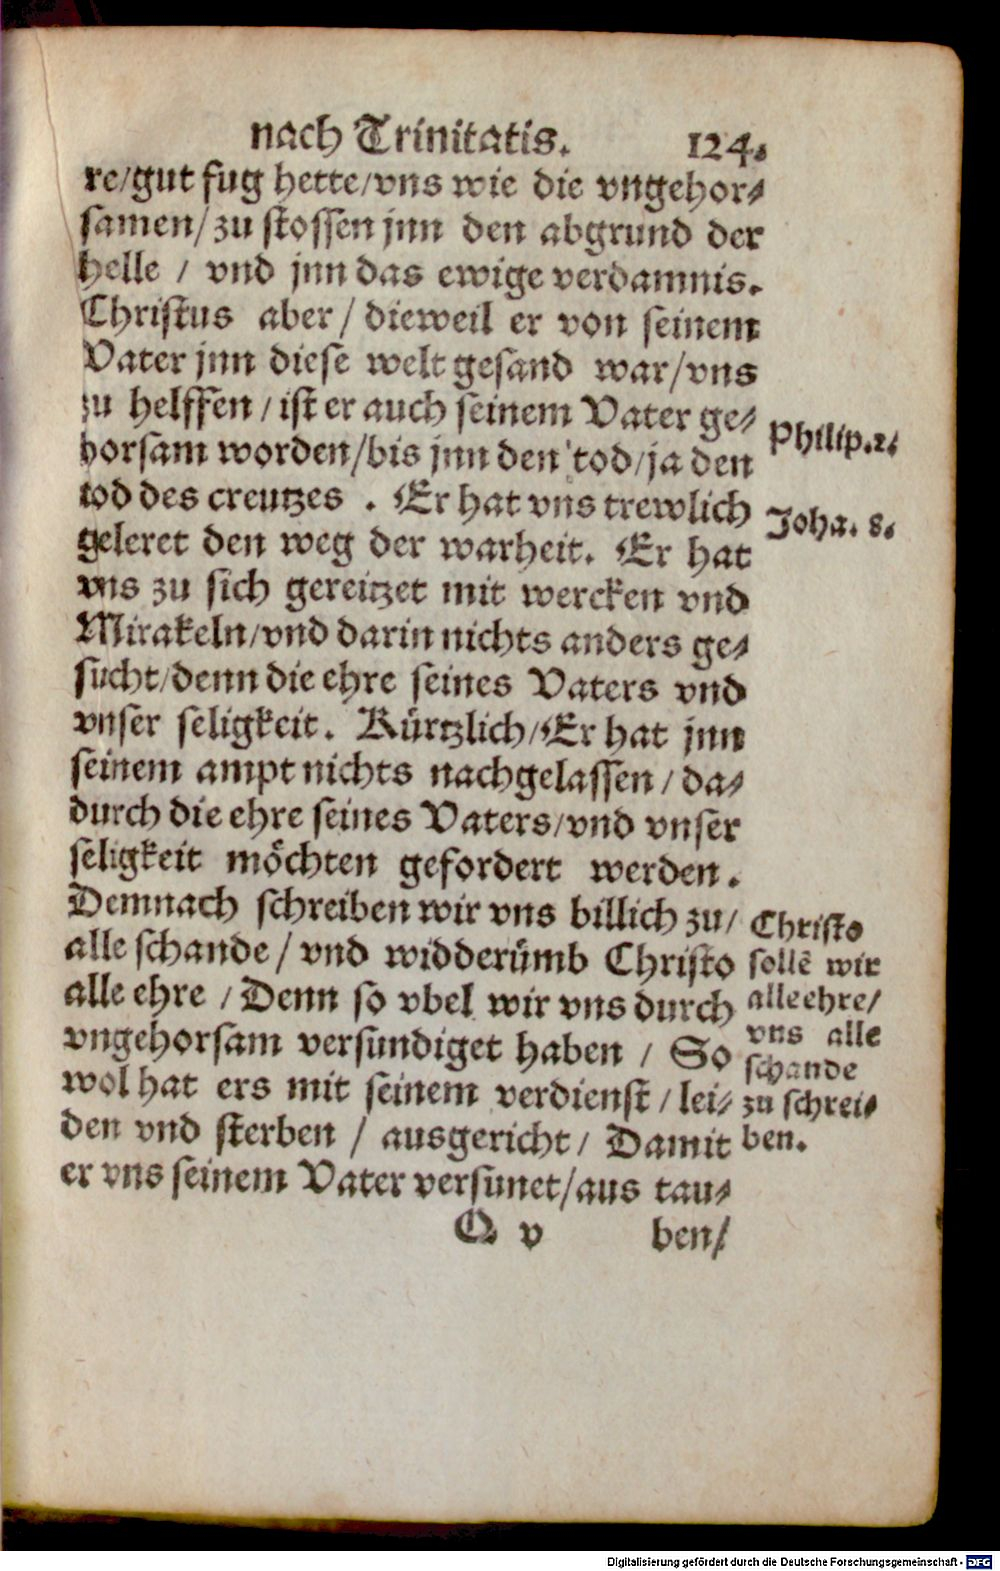 nach Trinitatis. 124.
re/gut fug hette/vns wie die vngehor⸗
samen/ zu stossen jnn den abgrund der
helle / vnd jnn das ewige verdamnis.
Christus aber / dieweil er von seinem
Vater jnn diese welt gesand war/vns
zu helffen / ist er auch seinem Vater ge⸗
horsam worden/bis jnn den tod/ja den
tod des creutzes . Er hat vns trewlich
geleret den weg der warheit. Er hat
vns zu sich gereitzet mit wercken vnd
Mirakeln/vnd darin nichts anders ge⸗
sucht/denn die ehre seines Vaters vnd
vnser seligkeit. Kürtzlich/Er hat jnn
seinem ampt nichts nachgelassen / da⸗
durch die ehre seines Vaters/vnd vnser
seligkeit möchten gefordert werden.
Demnach schreiben wir vns billich zu/
alle schande / vnd widderümb Christo
alle ehre / Denn so vbel wir vns durch
vngehorsam versundiget haben / So
wol hat ers mit seinem verdienst / lei⸗
den vnd sterben / ausgericht / Damit
er vns seinem Vater versunet/aus tau⸗
Q v ben/
Philip.2.
Joha. 8.
Christo
sollē wir
alle ehre/
vns alle
schande
zu schrei⸗
ben.
Digitalisierung gefördert durch die Deutsche Forschungsgemeinschaft - DFG